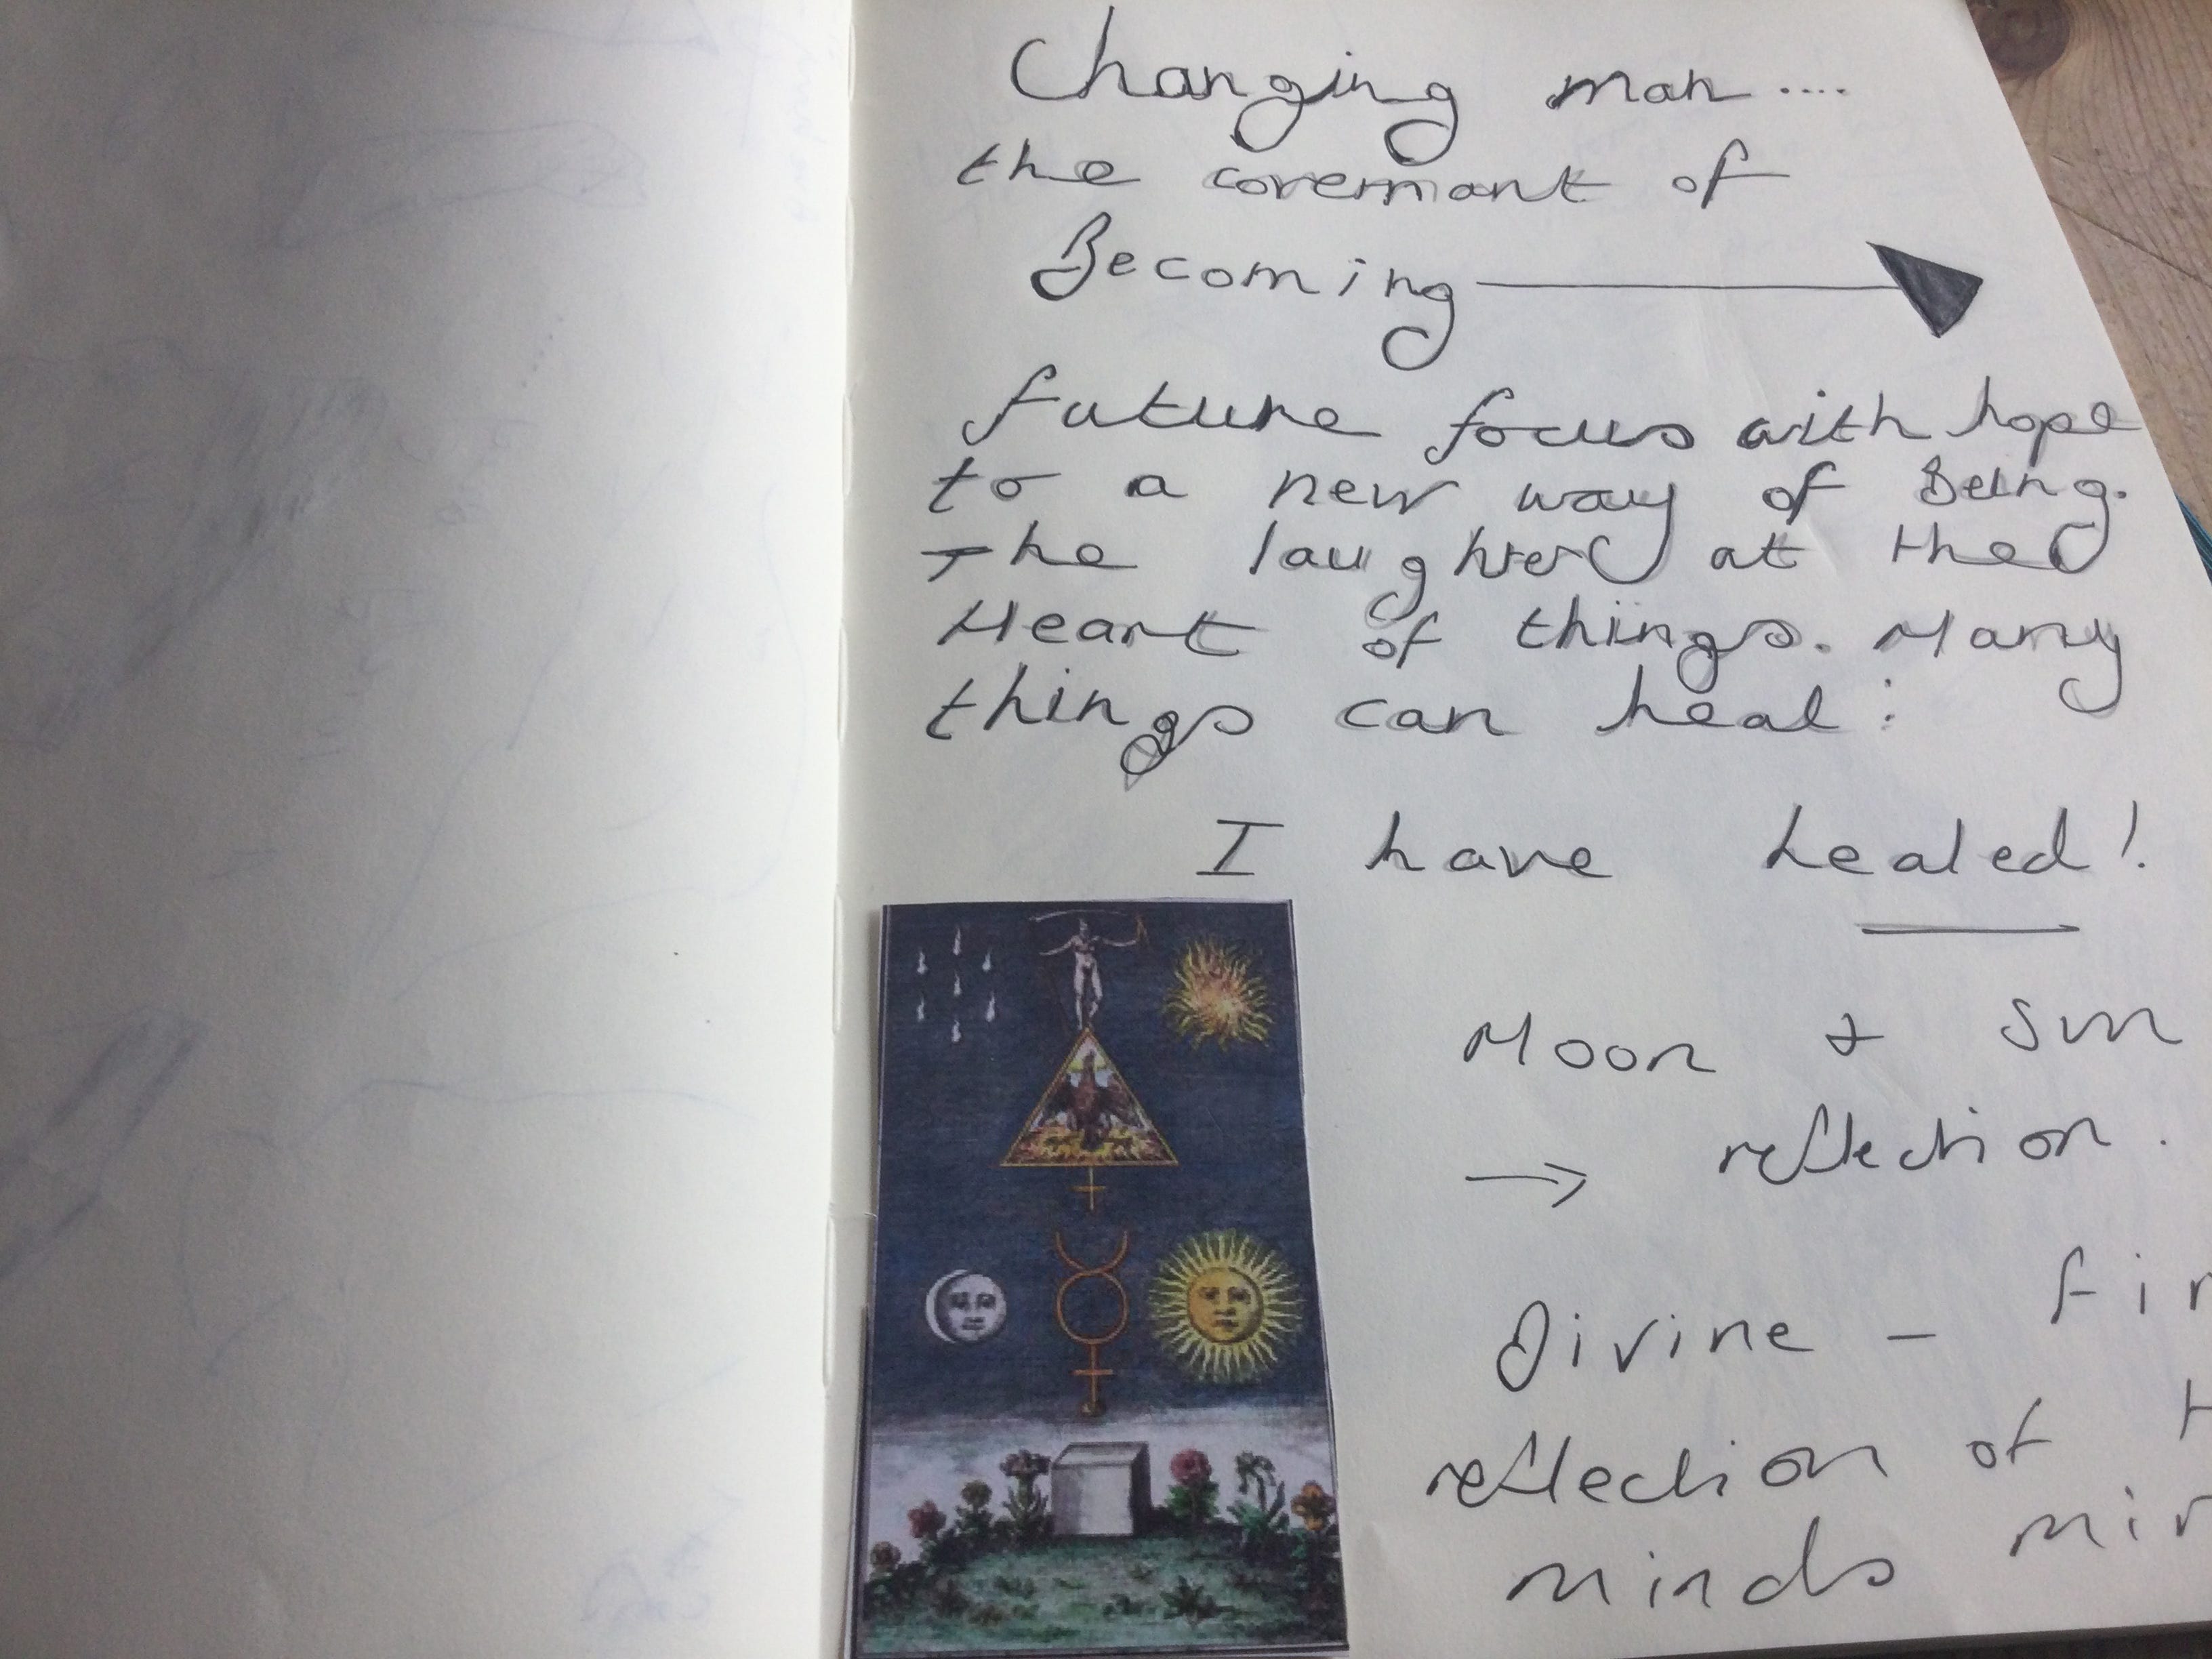 Changing man....
the covenant of
Becoming
future focus with hope
to a new way of Being.
The laughter at the
Heart of things. Many
things can heal:
I have healed!
Moon & Sun
→ reflection.
Divine -
reflection of
minds